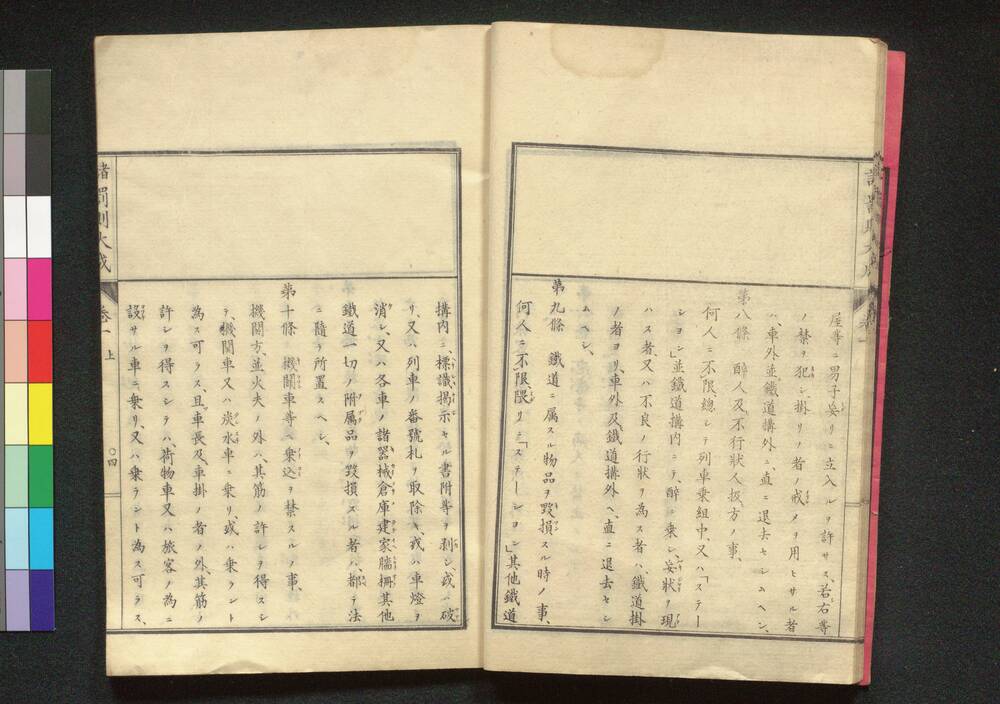 屋等ニ男子妄リニ立入ルヲ許サス、若右等
ノ禁ヲ犯シ掛リノ者ノ戒メヲ用ヒサル者
ハ、車外並鐵道搆外ニ直ニ退去セシムヘシ、
第八條 醉人及不行狀人扱方ノ事、
何人ニ不限、總シテ列車乗組中、又ハ「ステー
シヨン」並鐵道搆内ニテ、醉ニ乗シ、妄狀ヲ現
ハス者、又ハ不良ノ行狀ヲ為ス者ハ、鐵道掛
ノ者ヨリ、車外及鐵道搆外ヘ、直ニ退去セシ
ムヘシ、
第九條 鐵道ニ属スル物品ヲ毀損スル時ノ事、
何人ニ不限、猥リニ「ステーシヨン」其他鐵道
搆内ニ、標識掲示セル書附等ヲ剥シ、或ハ破
リ、又ハ列車ノ番號札ヲ取除ヘ、或ハ車燈ヲ
消シ、又ハ各車ノ諸器械倉庫建家牆柵其他
鐵道一切ノ附属品ヲ毀損スル者ハ、都テ法
ニ随ヲ所置スヘシ、
第十條 機關車等ヘ乗込ヲ禁スルノ事、
機關方並火夫ノ外ハ、其筋ノ許シヲ得スシ
テ、機關車又ハ炭水車ニ乗リ、或ハ乗ラント
為ス可ラス、且車長及車掛ノ者ノ外、其筋ノ
許シヲ得スシテハ、荷物車又ハ旅客ノ為ニ
設サル車ニ乗リ、又ハ乗ラント為ス可ラス、
諸罰則大成
卷一 上
〇四